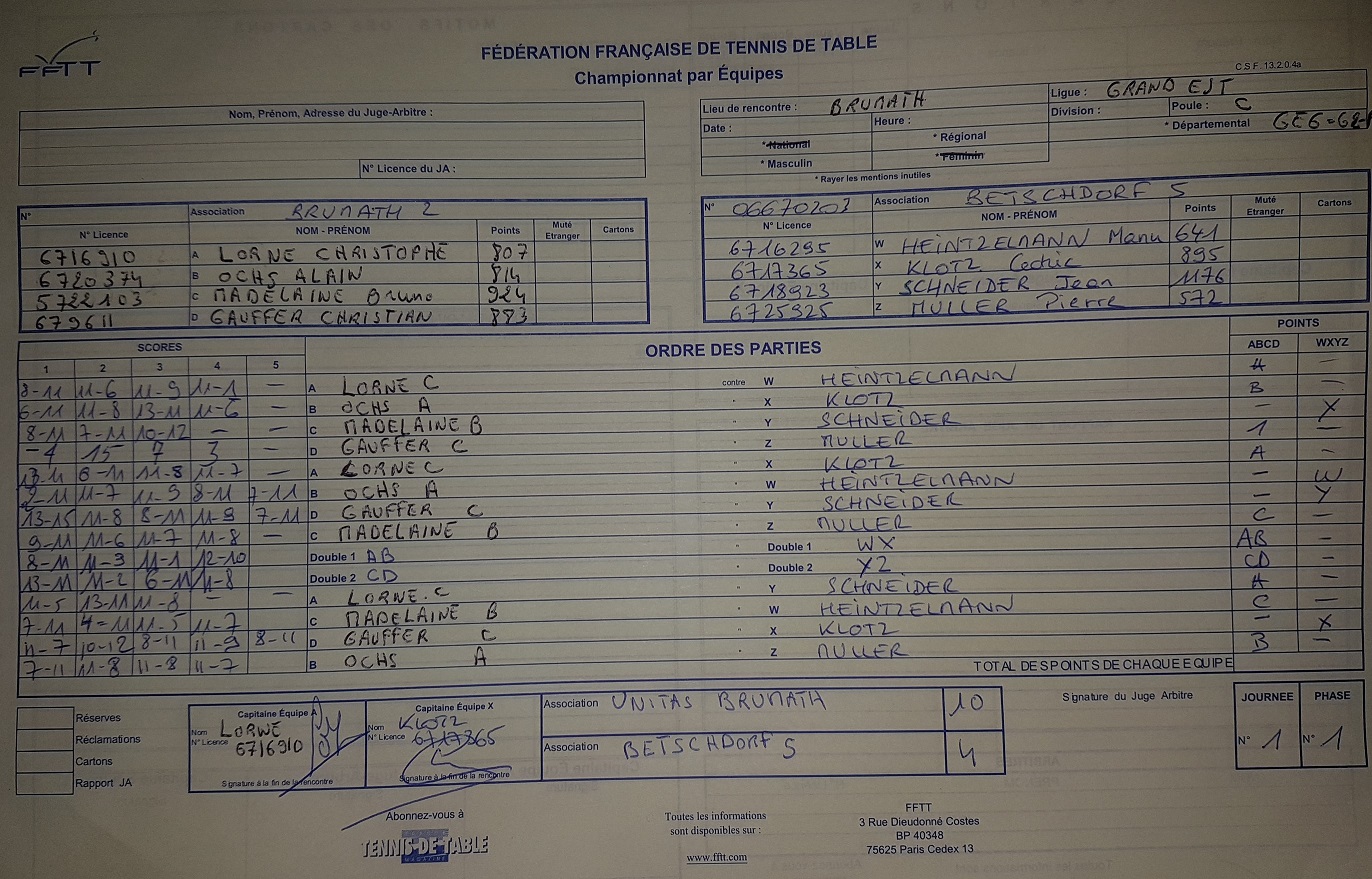 FFTT
FÉDÉRATION FRANÇAISE DE TENNIS DE TABLE
Championnat par Équipes
C.S.F. 13.2.0.4a
Nom, Prénom, Adresse du Juge-Arbitre :
N° Licence du JA :
Lieu de rencontre : BRUMATH Ligue : GRAND EST
Date : Heure : Division : Poule : C
* National * Régional * Départemental
* Masculin * Féminin
* Rayer les mentions inutiles
N° Association BRUMATH 2
N° Licence NOM - PRÉNOM Points Muté Etranger Cartons
6716910 A LORNE CHRISTOPHE 807
6720374 B OCHS ALAIN 814
5722103 C MADELAINE Bruno 924
679611 D GAUFFER CHRISTIAN 883
N° 06670203 Association BETSCHDORF 5
N° Licence NOM - PRÉNOM Points Muté Etranger Cartons
6716295 W HEINTZELMANN Manu 641
6717365 X KLOTZ Cedric 895
6718923 Y SCHNEIDER Jean 1176
6725925 Z MULLER Pierre 572
SCORES ORDRE DES PARTIES POINTS
1 2 3 4 5 ABCD WXYZ
8-11 11-6 11-9 11-1 — A LORNE C contre W HEINTZELMANN A —
6-11 11-8 13-11 11-6 — B OCHS A " X KLOTZ B —
8-11 7-11 10-12 — — C MADELAINE B " Y SCHNEIDER — X
-4 15 7 3 — D GAUFFER C " Z MULLER 1 —
13-11 6-11 11-8 11-7 — A LORNE C " X KLOTZ A —
9-11 11-7 11-9 8-11 7-11 B OCHS A " W HEINTZELMANN — W
13-15 11-8 8-11 11-9 7-11 D GAUFFER C " Y SCHNEIDER — Y
9-11 11-6 11-7 11-8 — C MADELAINE B " Z MULLER C —
8-11 11-3 11-1 12-10 Double 1 AB " Double 1 WX AB —
13-11 11-2 6-11 11-8 — Double 2 CD " Double 2 YZ CD —
11-5 13-11 11-8 — A LORNE.C " Y SCHNEIDER A —
7-11 4-11 11-5 11-7 C MADELAINE B " W HEINTZELMANN C —
11-7 10-12 8-11 11-9 8-11 D GAUFFER C " X KLOTZ — X
7-11 11-8 11-8 11-7 B OCHS A " Z MULLER B —
TOTAL DES POINTS DE CHAQUE EQUIPE
Réserves
Réclamations
Cartons
Rapport JA
Capitaine Équipe A
Nom LORNE
N° Licence 6716910
Signature à la fin de la rencontre
Capitaine Équipe X
Nom KLOTZ
N° Licence 6717365
Signature à la fin de la rencontre
Association UNITAS BRUMATH 10
Association BETSCHDORF 5 4
Signature du Juge Arbitre
JOURNEE PHASE
N° 1 N° 1
Abonnez-vous à
TENNIS DE TABLE
MAGAZINE
Toutes les informations
sont disponibles sur :
www.fftt.com
FFTT
3 Rue Dieudonné Costes
BP 40348
75625 Paris Cedex 13